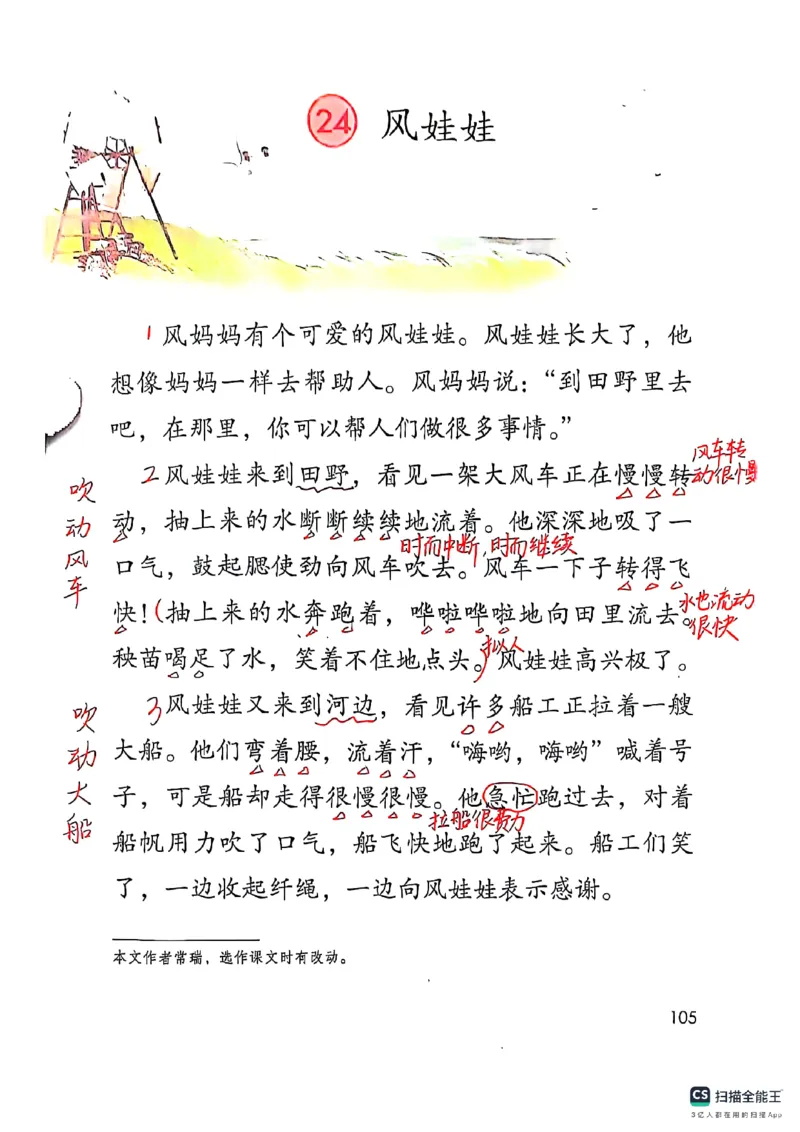 24 风娃娃
1风妈妈有个可爱的风娃娃。风娃娃长大了，他
想像妈妈一样去帮助人。风妈妈说：“到田野里去
吧，在那里，你可以帮人们做很多事情。”
风车转
动很慢
2风娃娃来到田野，看见一架大风车正在慢慢转
吹动风车
动，抽上来的水断断续续地流着。他深深地吸了一
时而中断，时而继续
口气，鼓起腮使劲向风车吹去。风车一下子转得飞
快！(抽上来的水奔跑着，哗啦哗啦地向田里流去。
水也流动
很快
拟人
秧苗喝足了水，笑着不住地点头。)风娃娃高兴极了。
3风娃娃又来到河边，看见许多船工正拉着一艘
吹动大船
大船。他们弯着腰，流着汗，“嗨哟，嗨哟”喊着号
子，可是船却走得很慢很慢。他急忙跑过去，对着
拉船很费力
船帆用力吹了口气，船飞快地跑了起来。船工们笑
了，一边收起纤绳，一边向风娃娃表示感谢。
本文作者常瑞，选作课文时有改动。
105
CS 扫描全能王
3亿人都在用的扫描App